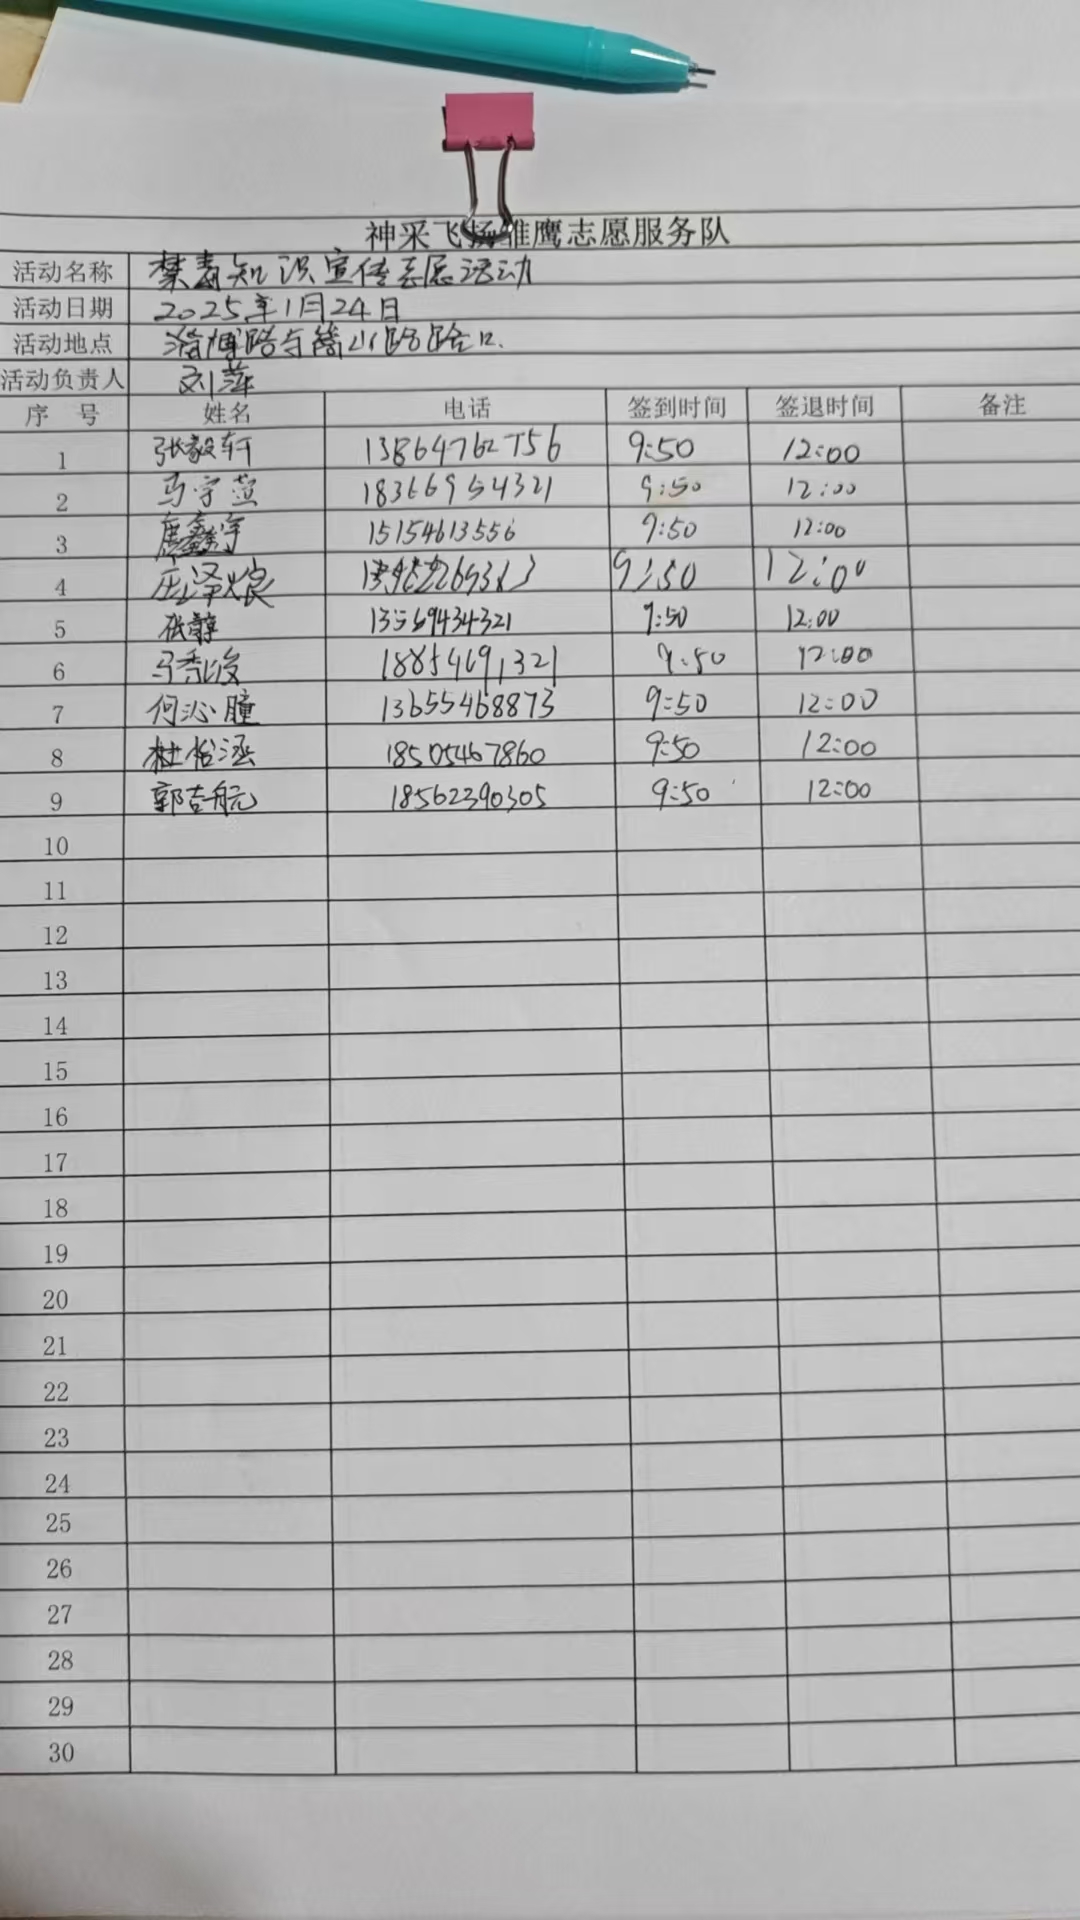 神采飞扬雏鹰志愿服务队
活动名称 禁毒知识宣传志愿活动
活动日期 2025年1月24日
活动地点 淄博路与 山路路口.
活动负责人 刘萍
序号 姓名 电话 签到时间 签退时间 备注
1 张毅轩 13864762756 9:50 12:00
2 马宇萱 18366954321 9:50 12:00
3 唐鑫宇 15154613556 9:50 12:00
4 庄泽烺 9:50 12:00
5 张静 13569434321 9:50 12:00
6 18854691321 9:50 12:00
7 何沁瞳 13655468873 9:50 12:00
8 杜怡涵 18505467860 9:50 12:00
9 郭吉航 18562390305 9:50 12:00
10
11
12
13
14
15
16
17
18
19
20
21
22
23
24
25
26
27
28
29
30